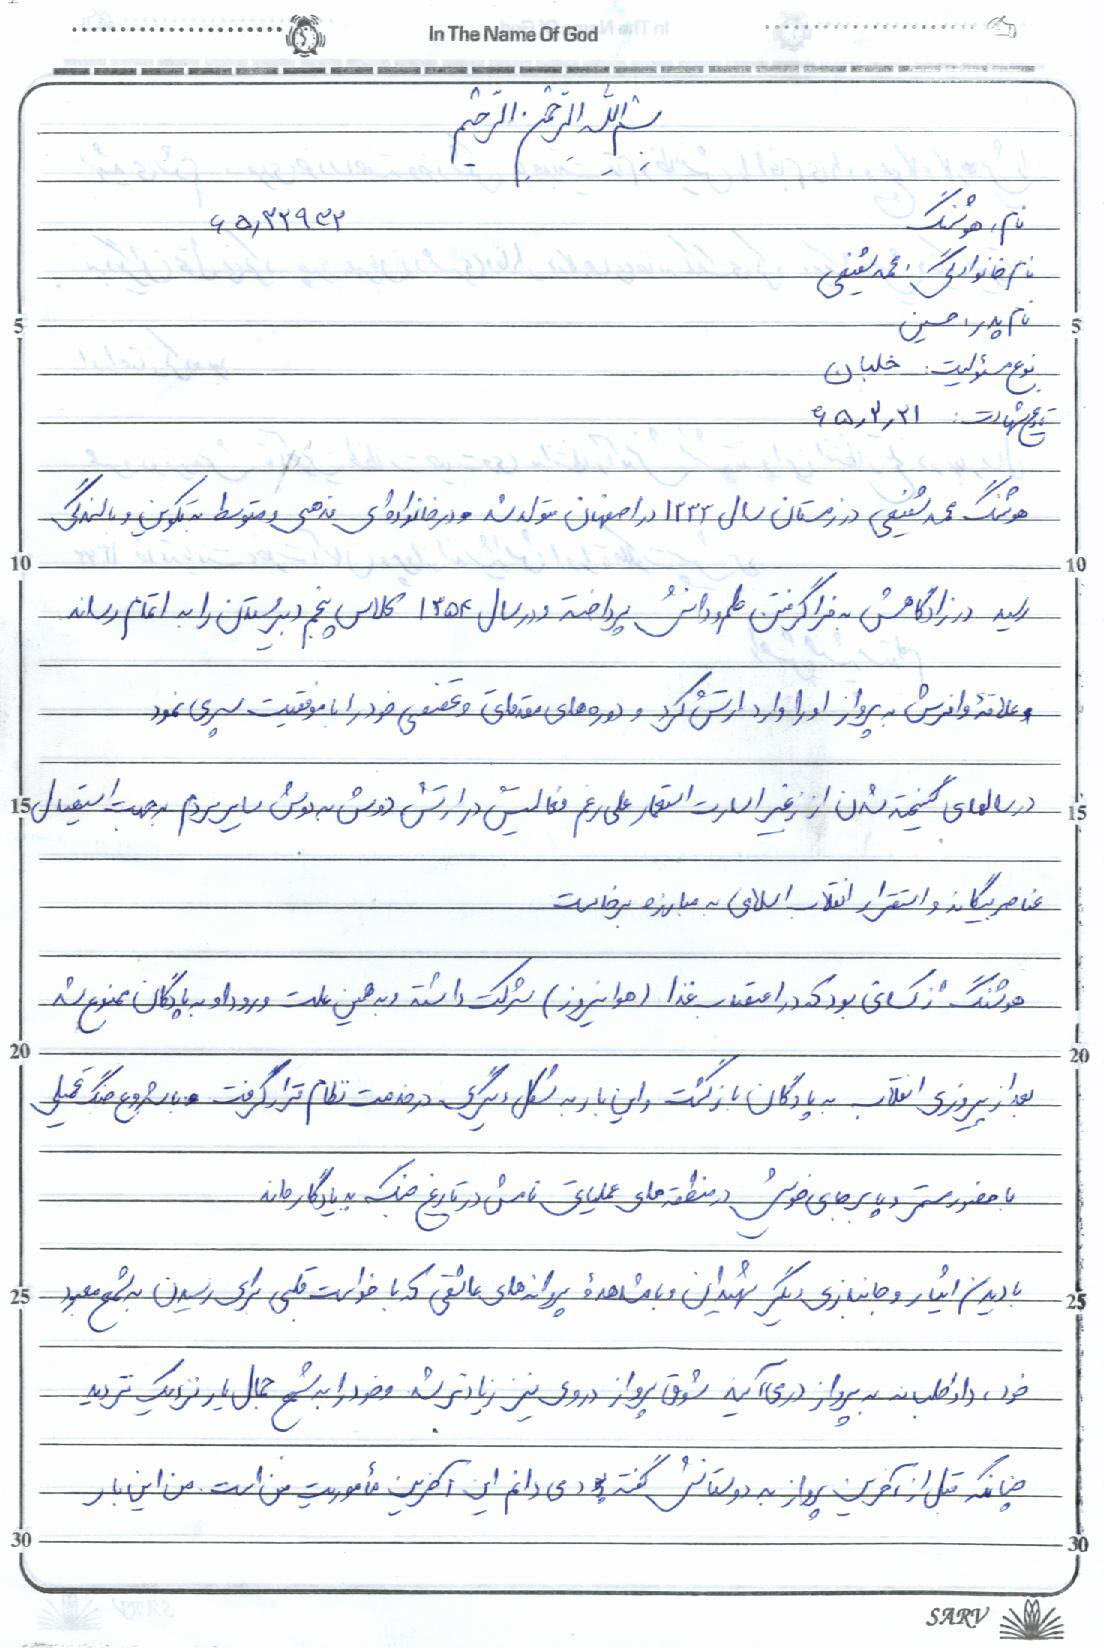 In The Name Of God
بسم الله الرحمن الرحیم
نام: هوشنگ
نام خانوادگی: محمد شفیعی
نام پدر: حسین
نوع مسئولیت: خلبان
تاریخ شهادت: ۶۵٫۳٫۲۱
هوشنگ محمد شفیعی در زمستان سال ۱۳۳۳ در اصفهان متولد شد و در خانواده‌ای مذهبی و متوسط به تکوین و بالندگی
رسید در زادگاهش به فراگرفتن علم و دانش پرداخته و در سال ۱۳۵۴ کلاس پنجم دبیرستان را به اتمام رساند
و علاقهٔ وافرش به پرواز او را وارد ارتش کرد و دوره‌های مقدماتی و تخصصی خود را با موفقیت سپری نمود
در سالهای گسیخته شدن از زنجیر اسارت استعمار علی رغم فعالیتش در ارتش دوش به دوش سایر مردم به جهت استیصال
عناصر بیگانه و استقرار انقلاب اسلامی به مبارزه برخاست
هوشنگ از کسانی بود که در اعتصاب غذا (هوانیروز) شرکت داشته و به همین علت ورود او به پادگان ممنوع شد
بعد از پیروزی انقلاب به پادگان بازگشت و این بار به شکل دیگری در خدمت نظام قرار گرفت و با شروع جنگ تحمیلی
با حضور مستمر و پا برجای خویش در منطقه‌های عملیاتی نامش در تاریخ جنگ به یادگار ماند
با دیدن ایثار و جانبازی دیگر شهیدان و با مشاهدهٔ پروانه‌های عاشقی که با خواست قلبی برای رسیدن به شمع معبود
خود، داوطلبانه به پرواز درمی‌آیند شوق پرواز در وی نیز زیادتر شد و خود را به شمع جمال یار نزدیک تر دید
چنانکه قبل از آخرین پرواز به دوستانش گفته بود می دانم این آخرین مأموریت من است. من این بار
5
10
15
20
25
30
5
10
15
20
25
30
SARV